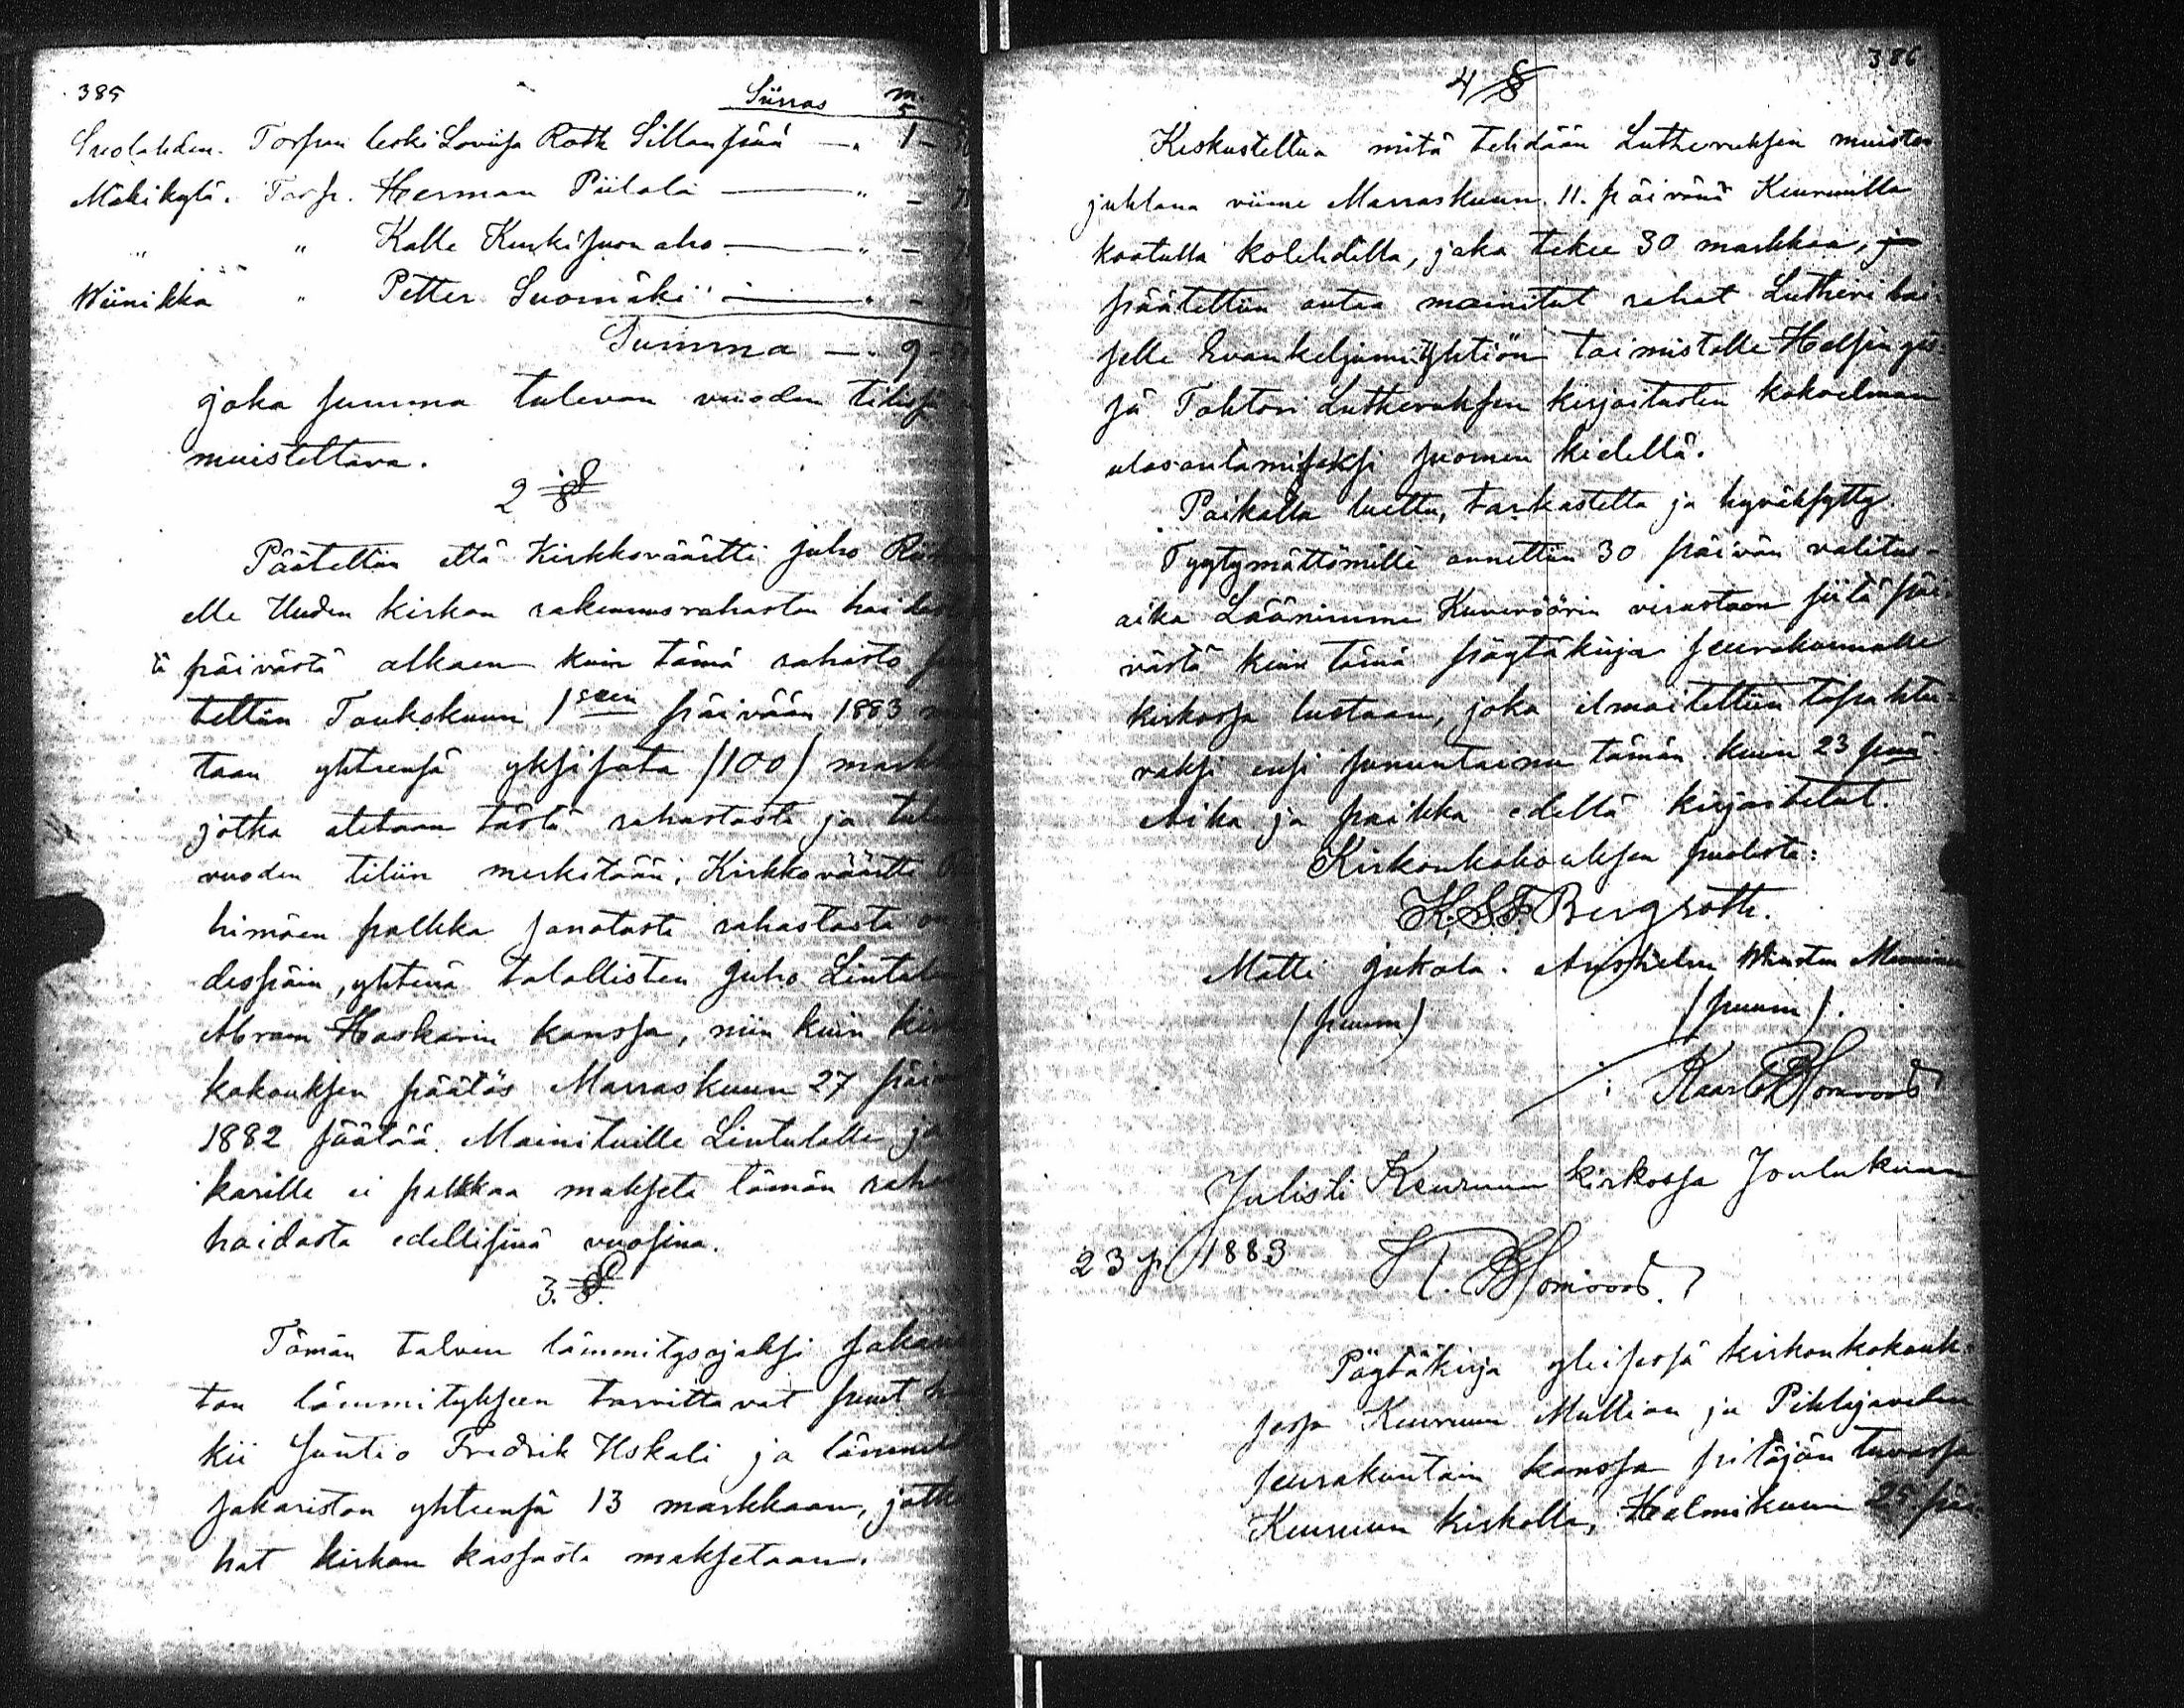 385
Siirros m.
5
Suolahden. Torpan leski Loviisa Roth Sillanpää — „ 1 –
Mäkikylä. Torp. Herman Piilola — „ –
„ „ Kalle Kurkisuonaho — „ –
Wiinikka „ Petter Suomäki — „ –
Summa — 9 –
joka summa tulevan vuoden tilissä
muistettava.
2 §
Päätettiin että Kirkkoväärtti Juho
elle Uuden kirkon rakennusrahaston
päivästä alkaen kuin tämä rahasto
tettiin Toukokuun 1sen päivään 1883
taan yhteensä yksisata /100/
jotka otetaan tästä rahastosta ja
vuoden tiliin merkitään. Kirkkoväärtti
himäen palkka sanotusta rahastosta
despäin, yhtenä talollisten Juho
Abram Haskarin kanssa, niin kuin
kokouksen päätös Marraskuun 27
1882 säätää. Mainituille Lintulalle ja
karille ei palkkaa makseta tämän
hoidosta edellisinä vuosina.
3. §.
Tämän talven lämmitysajaksi
ton lämmitykseen tarvittavat puut
kii Suntio Fredrik Uskali ja
sakariston yhteensä 13 markkaan,
hat kirkon kassasta maksetaan.
386
4 §
Keskusteltua mitä tehdään Lutheruksen muisto
juhlana viime Marraskuun 11. päivänä Keuruulla
kootulla kolehdilla, joka tekee 30 markkaa,
päätettiin antaa mainitut rahat Lutherilai-
selle Evankeljumiyhtiön toimistolle Helsingis-
sä Tohtori Lutheruksen kirjoitusten kokoelman
ulosantamiseksi suomen kielellä.
Paikalla luettu, tarkastettu ja hyväksytty.
Tyytymättömille annettiin 30 päivän valitus-
aika Läänimme Kuvernöörin virastoon siitä päi-
västä kuin tämä pöytäkirja seurakunnalle
kirkossa luetaan, joka ilmoitettiin tapahtu-
vaksi ensi sunnuntaina tämän kuun 23 pnä
Aika ja paikka edellä kirjoitetut.
Kirkonkokouksen puolesta:
K. S. F. Bergroth.
Matti Jukola. Anshelm
(puum) (puum).
Kaarlo Blomroos
Julisti Keuruun kirkossa Joulukuun
23 p. 1883 K. Blomroos.
Pöytäkirja yleisessä kirkonkokouk-
sessa Keuruun Multian ja Pihlajaveden
seurakuntain kanssa pitäjän tuvassa
Keuruun kirkolla, Helmikuun 25 päi-